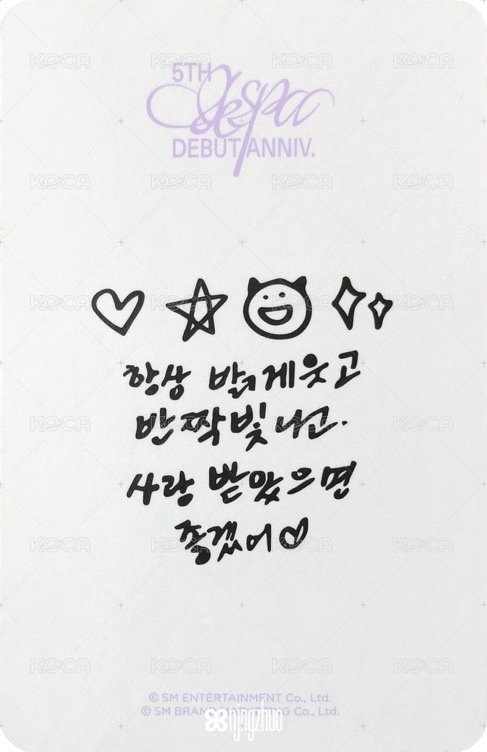 5TH
aespa
DEBUT ANNIV.
항상 밝게 웃고
반짝 빛나고.
사랑 받았으면
좋겠어♡
© SM ENTERTAINMENT Co., Ltd.
© SM BRAND MARKETING Co., Ltd.
ningzhuo
KOCA